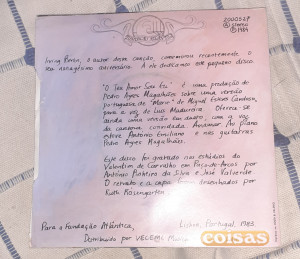 200051P
STEREO
℗ 1984
Irving Berlin, o autor desta canção, comemorou recentemente o
seu nonagésimo aniversário. A ele dedicamos este pequeno disco.
"O Teu Amor Sou Eu" é uma produção de
Pedro Ayres Magalhães sobre uma versão
portuguesa de "Marie" de Miguel Esteves Cardoso,
para a voz de Luís Madureira. Oferece-se
ainda uma versão em dueto, com a voz
da cantora convidada, Anamar. Ao piano
esteve António Emiliano e nas guitarras
Pedro Ayres Magalhães.
Este disco foi gravado nos estúdios da
Valentim de Carvalho em Paço-de-Arcos por
António Pinheiro da Silva e José Valverde.
O retrato e a capa foram desenhados por
Ruth Rosengarten.
Para a Fundação Atlântica,
Lisboa, Portugal 1983.
Distribuído por VECEMI
coisas